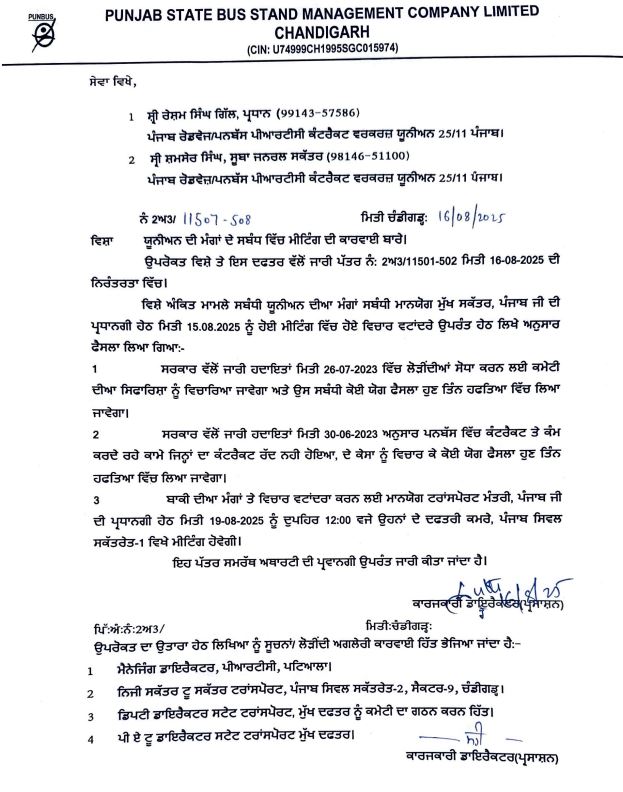 PUNBUS
PUNJAB STATE BUS STAND MANAGEMENT COMPANY LIMITED
CHANDIGARH
(CIN: U74999CH1995SGC015974)
ਸੇਵਾ ਵਿਖੇ,
1 ਸ਼੍ਰੀ ਰੇਸ਼ਮ ਸਿੰਘ ਗਿੱਲ, ਪ੍ਰਧਾਨ (99143-57586)
ਪੰਜਾਬ ਰੋਡਵੇਜ਼/ਪਨਬੱਸ ਪੀਆਰਟੀਸੀ ਕੰਟਰੈਕਟ ਵਰਕਰਜ਼ ਯੂਨੀਅਨ 25/11 ਪੰਜਾਬ।
2 ਸ੍ਰੀ ਸ਼ਮਸੇਰ ਸਿੰਘ, ਸੂਬਾ ਜਨਰਲ ਸਕੱਤਰ (98146-51100)
ਪੰਜਾਬ ਰੋਡਵੇਜ਼/ਪਨਬੱਸ ਪੀਆਰਟੀਸੀ ਕੰਟਰੈਕਟ ਵਰਕਰਜ਼ ਯੂਨੀਅਨ 25/11 ਪੰਜਾਬ।
ਨੰ 2ਅ3/ 11507-508 ਮਿਤੀ ਚੰਡੀਗੜ੍ਹ: 16/08/2025
ਵਿਸ਼ਾ ਯੂਨੀਅਨ ਦੀ ਮੰਗਾਂ ਦੇ ਸਬੰਧ ਵਿੱਚ ਮੀਟਿੰਗ ਦੀ ਕਾਰਵਾਈ ਬਾਰੇ।
ਉਪਰੋਕਤ ਵਿਸ਼ੇ ਤੇ ਇਸ ਦਫਤਰ ਵੱਲੋਂ ਜਾਰੀ ਪੱਤਰ ਨੰ: 2ਅ3/11501-502 ਮਿਤੀ 16-08-2025 ਦੀ
ਨਿਰੰਤਰਤਾ ਵਿੱਚ।
ਵਿਸ਼ੇ ਅੰਕਿਤ ਮਾਮਲੇ ਸਬੰਧੀ ਯੂਨੀਅਨ ਦੀਆ ਮੰਗਾਂ ਸਬੰਧੀ ਮਾਨਯੋਗ ਮੁੱਖ ਸਕੱਤਰ, ਪੰਜਾਬ ਜੀ ਦੀ
ਪ੍ਰਧਾਨਗੀ ਹੇਠ ਮਿਤੀ 15.08.2025 ਨੂੰ ਹੋਈ ਮੀਟਿੰਗ ਵਿੱਚ ਹੋਏ ਵਿਚਾਰ ਵਟਾਂਦਰੇ ਉਪਰੰਤ ਹੇਠ ਲਿਖੇ ਅਨੁਸਾਰ
ਫੈਸਲਾ ਲਿਆ ਗਿਆ:-
1 ਸਰਕਾਰ ਵੱਲੋਂ ਜਾਰੀ ਹਦਾਇਤਾਂ ਮਿਤੀ 26-07-2023 ਵਿੱਚ ਲੋੜੀਂਦੀਆਂ ਸੋਧਾ ਕਰਨ ਲਈ ਕਮੇਟੀ
ਦੀਆ ਸਿਫਾਰਿਸ਼ਾ ਨੂੰ ਵਿਚਾਰਿਆ ਜਾਵੇਗਾ ਅਤੇ ਉਸ ਸਬੰਧੀ ਕੋਈ ਯੋਗ ਫੈਸਲਾ ਹੁਣ ਤਿੰਨ ਹਫਤਿਆ ਵਿੱਚ ਲਿਆ
ਜਾਵੇਗਾ।
2 ਸਰਕਾਰ ਵੱਲੋਂ ਜਾਰੀ ਹਦਾਇਤਾਂ ਮਿਤੀ 30-06-2023 ਅਨੁਸਾਰ ਪਨਬਸ ਵਿੱਚ ਕੰਟਰੈਕਟ ਤੇ ਕੰਮ
ਕਰਦੇ ਰਹੇ ਕਾਮੇ ਜਿਨ੍ਹਾਂ ਦਾ ਕੰਟਰੈਕਟ ਰੱਦ ਨਹੀ ਹੋਇਆ, ਦੇ ਕੇਸਾ ਨੂੰ ਵਿਚਾਰ ਕੇ ਕੋਈ ਯੋਗ ਫੈਸਲਾ ਹੁਣ ਤਿੰਨ
ਹਫਤਿਆ ਵਿੱਚ ਲਿਆ ਜਾਵੇਗਾ।
3 ਬਾਕੀ ਦੀਆ ਮੰਗਾਂ ਤੇ ਵਿਚਾਰ ਵਟਾਂਦਰਾ ਕਰਨ ਲਈ ਮਾਨਯੋਗ ਟਰਾਂਸਪੋਰਟ ਮੰਤਰੀ, ਪੰਜਾਬ ਜੀ
ਦੀ ਪ੍ਰਧਾਨਗੀ ਹੇਠ ਮਿਤੀ 19-08-2025 ਨੂੰ ਦੁਪਹਿਰ 12:00 ਵਜੇ ਉਹਨਾਂ ਦੇ ਦਫਤਰੀ ਕਮਰੇ, ਪੰਜਾਬ ਸਿਵਲ
ਸਕੱਤਰੇਤ-1 ਵਿਖੇ ਮੀਟਿੰਗ ਹੋਵੇਗੀ।
ਇਹ ਪੱਤਰ ਸਮਰੱਥ ਅਥਾਰਟੀ ਦੀ ਪ੍ਰਵਾਨਗੀ ਉਪਰੰਤ ਜਾਰੀ ਕੀਤਾ ਜਾਂਦਾ ਹੈ।
16/8/25
ਕਾਰਜਕਾਰੀ ਡਾਇਰੈਕਟਰ(ਪ੍ਰਸਾਸ਼ਨ)
ਪਿੱ:ਅੰ:ਨੰ:2ਅ3/ ਮਿਤੀ:ਚੰਡੀਗੜ੍ਹ:
ਉਪਰੋਕਤ ਦਾ ਉਤਾਰਾ ਹੇਠ ਲਿਖਿਆ ਨੂੰ ਸੂਚਨਾਂ/ ਲੋੜੀਂਦੀ ਅਗਲੇਰੀ ਕਾਰਵਾਈ ਹਿੱਤ ਭੇਜਿਆ ਜਾਂਦਾ ਹੈ:-
1 ਮੈਨੇਜਿੰਗ ਡਾਇਰੈਕਟਰ, ਪੀਆਰਟੀਸੀ, ਪਟਿਆਲਾ।
2 ਨਿਜੀ ਸਕੱਤਰ ਟੂ ਸਕੱਤਰ ਟਰਾਂਸਪੋਰਟ, ਪੰਜਾਬ ਸਿਵਲ ਸਕੱਤਰੇਤ-2, ਸੈਕਟਰ-9, ਚੰਡੀਗੜ੍ਹ।
3 ਡਿਪਟੀ ਡਾਇਰੈਕਟਰ ਸਟੇਟ ਟਰਾਂਸਪੋਰਟ, ਮੁੱਖ ਦਫਤਰ ਨੂੰ ਕਮੇਟੀ ਦਾ ਗਠਨ ਕਰਨ ਹਿੱਤ।
4 ਪੀ ਏ ਟੂ ਡਾਇਰੈਕਟਰ ਸਟੇਟ ਟਰਾਂਸਪੋਰਟ ਮੁੱਖ ਦਫਤਰ।
ਕਾਰਜਕਾਰੀ ਡਾਇਰੈਕਟਰ(ਪ੍ਰਸਾਸ਼ਨ)